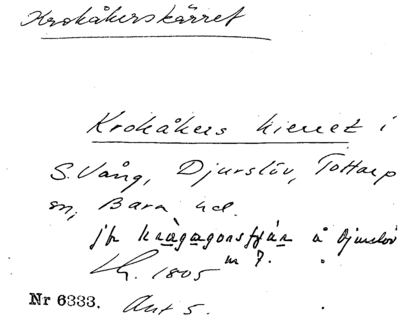 Krokåkerskärret
Krokåkers kierret i
S. Vång, Djurslöv, Tottarp
sn, Bara hd.
jfr å Djurslöv
m 7.
Lh. 1805
Nr 6333. Akt 5.